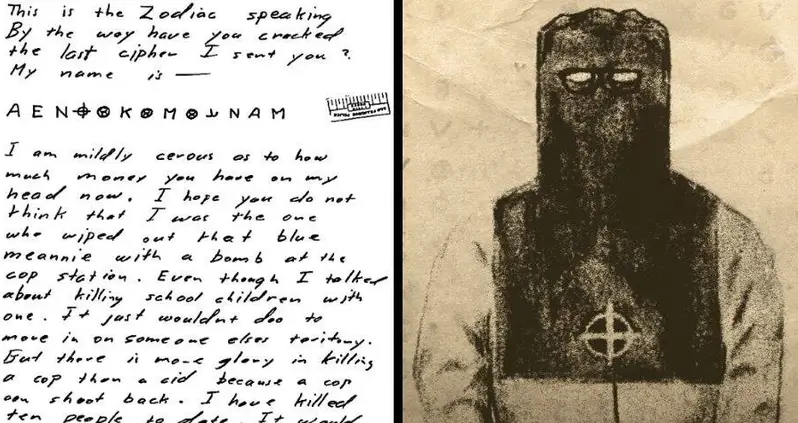 This is the Zodiac speaking
By the way have you cracked
the last cipher I sent you?
My name is —
A E N ⌖ ⊗ K ⊗ M ⊗ N A M
I am mildly cerous as to how
much money you have on my
head now. I hope you do not
think that I was the one
who wiped out that blue
meannie with a bomb at the
cop station. Even though I talked
about killing school children with
one. It just wouldnt doo to
move in on someone elses teritory.
But there is more glory in killing
a cop than a cid because a cop
can shoot back. I have killed
ten people to date. It would